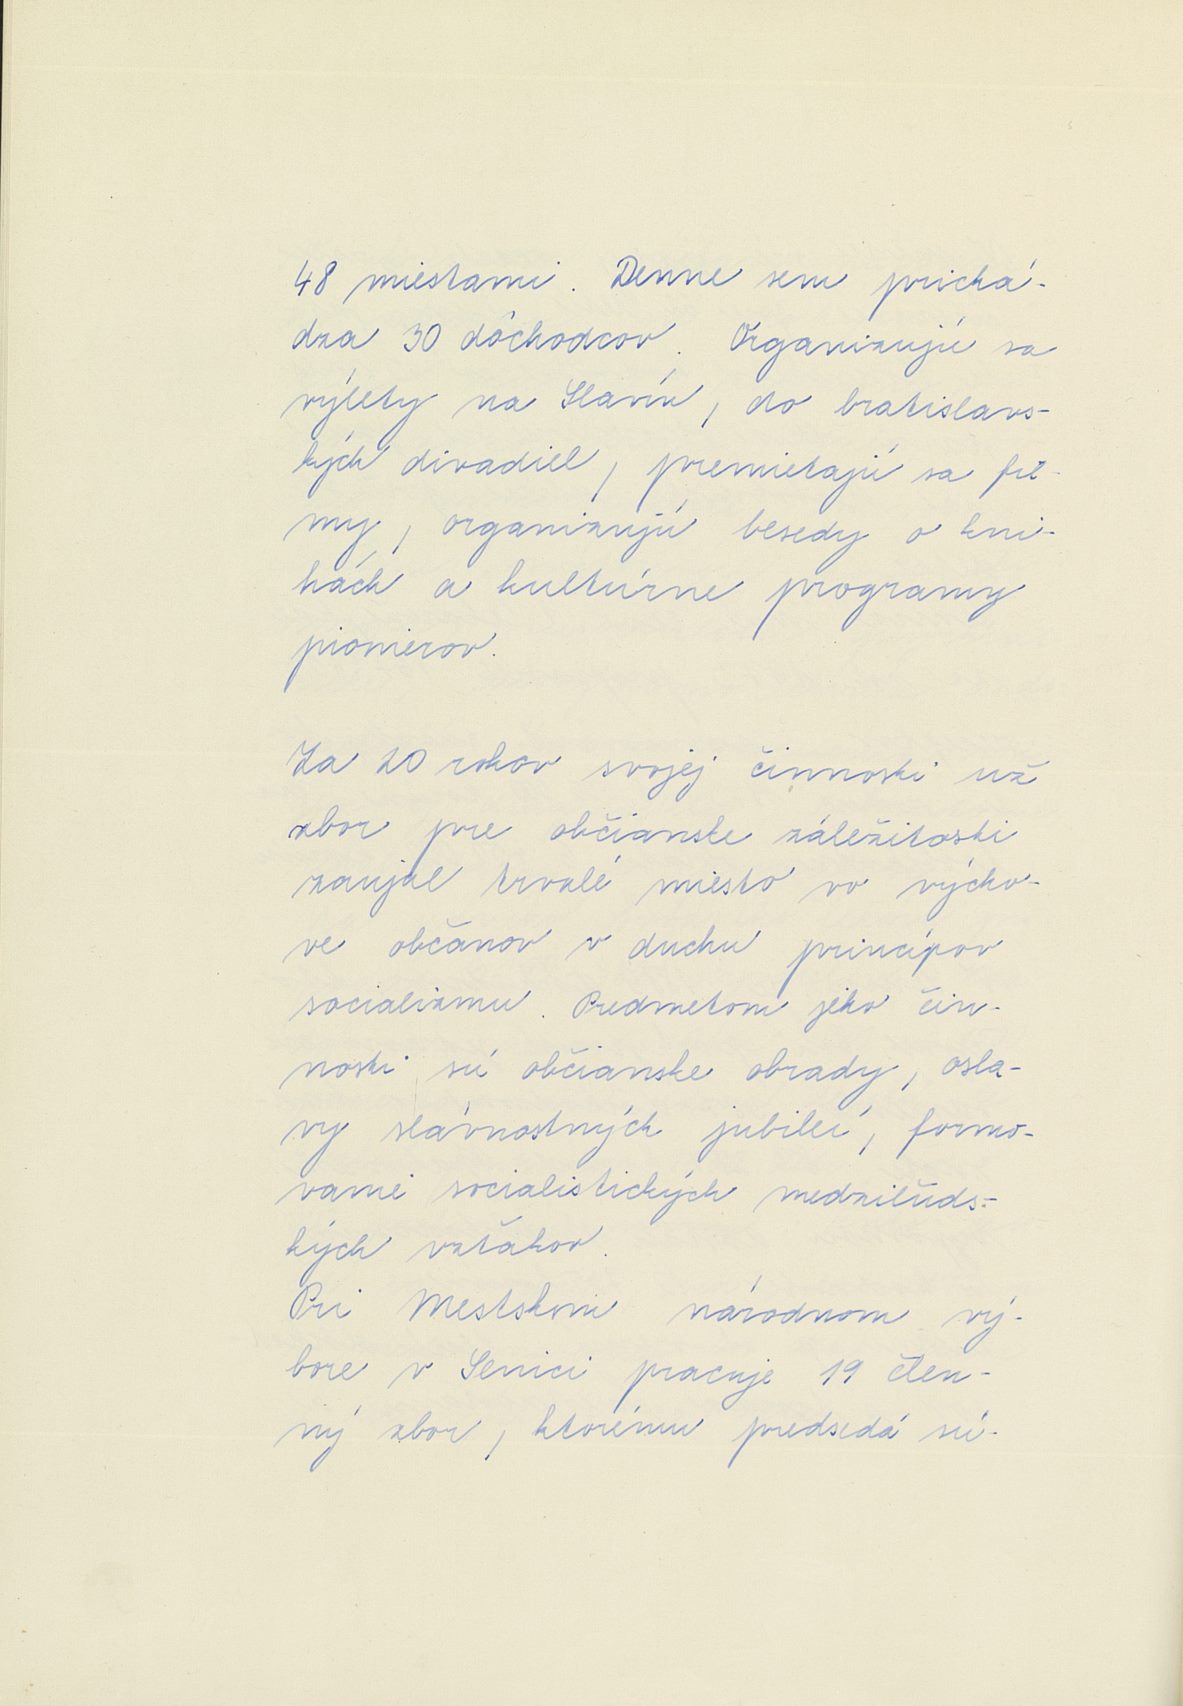 48 miestami. Denne sem prichá-
dza 30 dôchodcov. Organizujú sa
výlety na Slavín, do bratislavs-
kých divadiel, premietajú sa fil-
my, organizujú besedy o kni-
hách a kultúrne programy
pionierov.
Za 20 rokov svojej činnosti už
zbor pre občianske záležitosti
zaujal trvalé miesto vo výcho-
ve občanov v duchu princípov
socializmu. Predmetom jeho čin-
nosti sú občianske obrady, osla-
vy slávnostných jubileí, formo-
vanie socialistických medziľuds-
kých vzťahov.
Pri Mestskom národnom vý-
bore v Senici pracuje 19 člen-
ný zbor, ktorému predsedá sú-